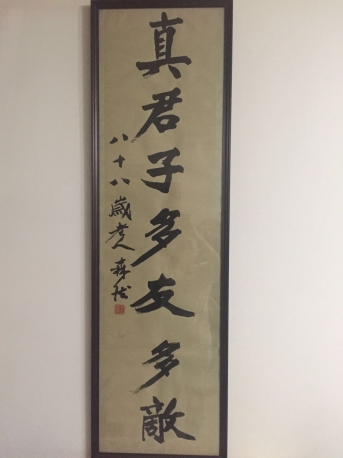 真君子多友多敵
八十八歲老人森然